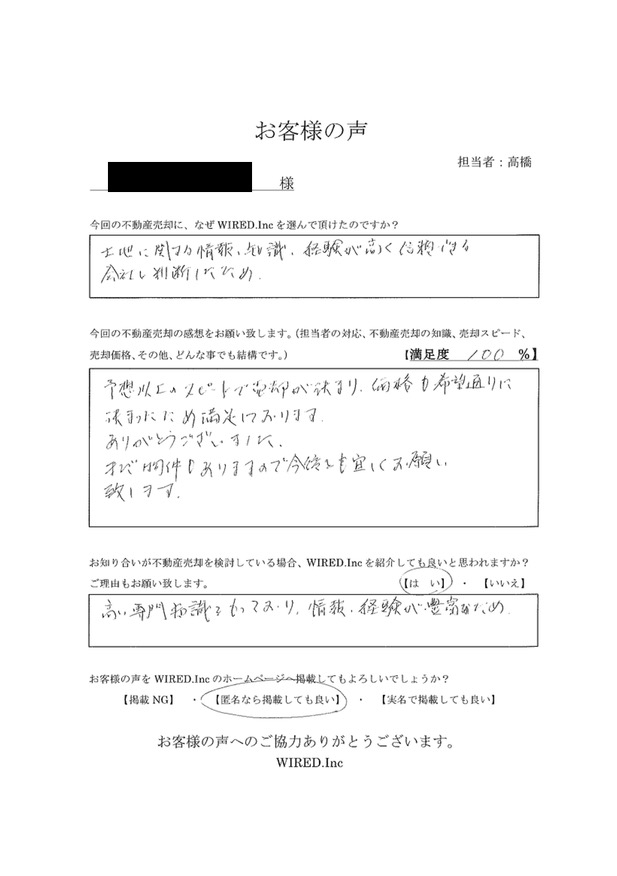 お客様の声
担当者：高橋
様
今回の不動産売却に、なぜWIRED.Incを選んで頂けたのですか？
土地に関する情報、知識、経験が高く信頼できる
会社と判断したため.
今回の不動産売却の感想をお願い致します。（担当者の対応、不動産売却の知識、売却スピード、
売却価格、その他、どんな事でも結構です。） 【満足度 100 %】
予想以上のスピードで売却が決まり、価格も希望通りに
決まったため満足しております.
ありがとうございました.
まだ物件もありますので今後とも宜しくお願い
致します.
お知り合いが不動産売却を検討している場合、WIRED.Incを紹介しても良いと思われますか？
ご理由もお願い致します。 【は い】 ・ 【いいえ】
高い専門知識をもっており、情報、経験が豊富なため.
お客様の声をWIRED.Incのホームページへ掲載してもよろしいでしょうか？
【掲載NG】 ・ 【匿名なら掲載しても良い】 ・ 【実名で掲載しても良い】
お客様の声へのご協力ありがとうございます。
WIRED.Inc